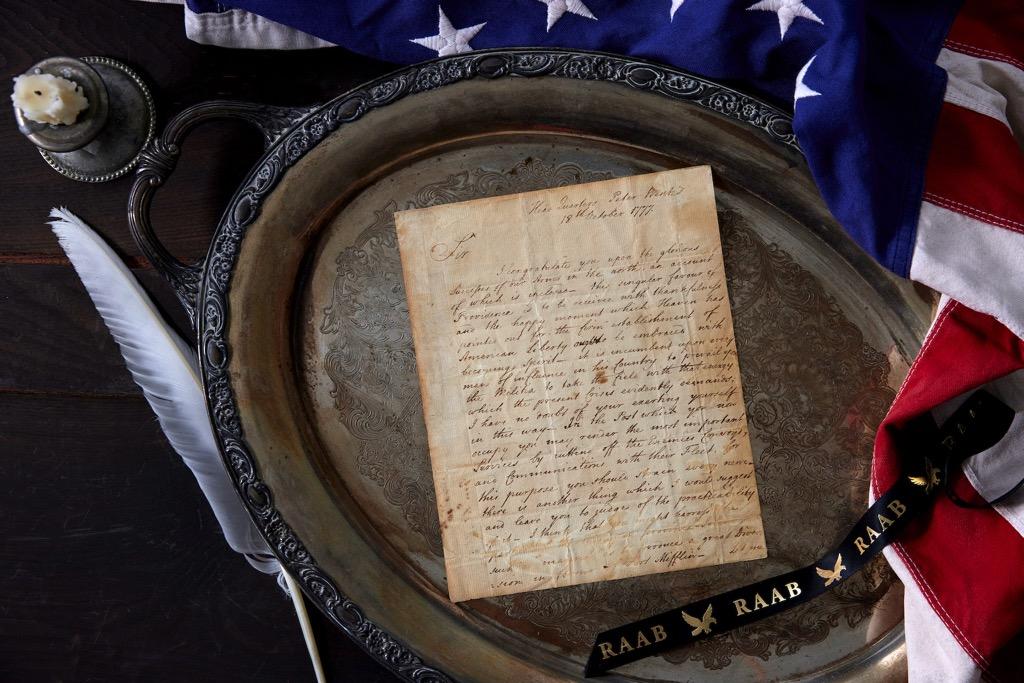 Head Quarters Peter Wentz
18th October 1777.
Sir
I congratulate you upon the glorious
Success of our Arms in the north, an account
of which is enclosed the singular favour of
Providence is to be received with thankfulness
and the happy moment which Heaven has
pointed out for the firm establishment of
American Liberty ought to be embraced with
becoming spirit— it is incumbent upon every
man of influence in his Country to prevail upon
the Militia to take the field with that energy
which the present crisis evidently demands,
I have no doubt of your exerting yourself
in this way. In the Post which you now
occupy you may render the most important
Services by cutting off the Enemies Convoys
and Communications with their Fleet, for
this purpose you should strain every nerve
there is another thing which I would suggest
and leave you to judge of the practicability
of it— I think that
such a great Diver
sion in Mifflin
RAAB RAAB RAAB RAA